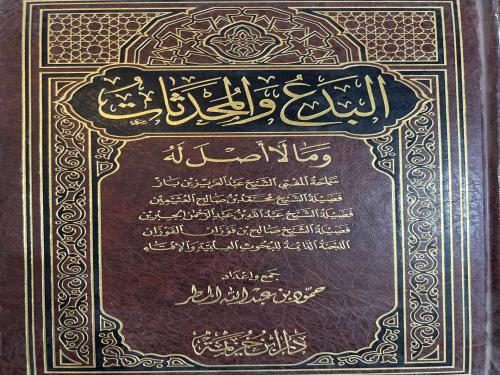 البدع والمحدثات
وما لا أصل له
سماحة المفتي الشيخ عبد العزيز بن باز
فضيلة الشيخ محمد بن صالح العثيمين
فضيلة الشيخ عبد الله بن عبد الرحمن الجبرين
فضيلة الشيخ صالح بن فوزان الفوزان
اللجنة الدائمة للبحوث العلمية والإفتاء
جمع وإعداد
حمود بن عبد الله المطر
دار ابن خزيمة